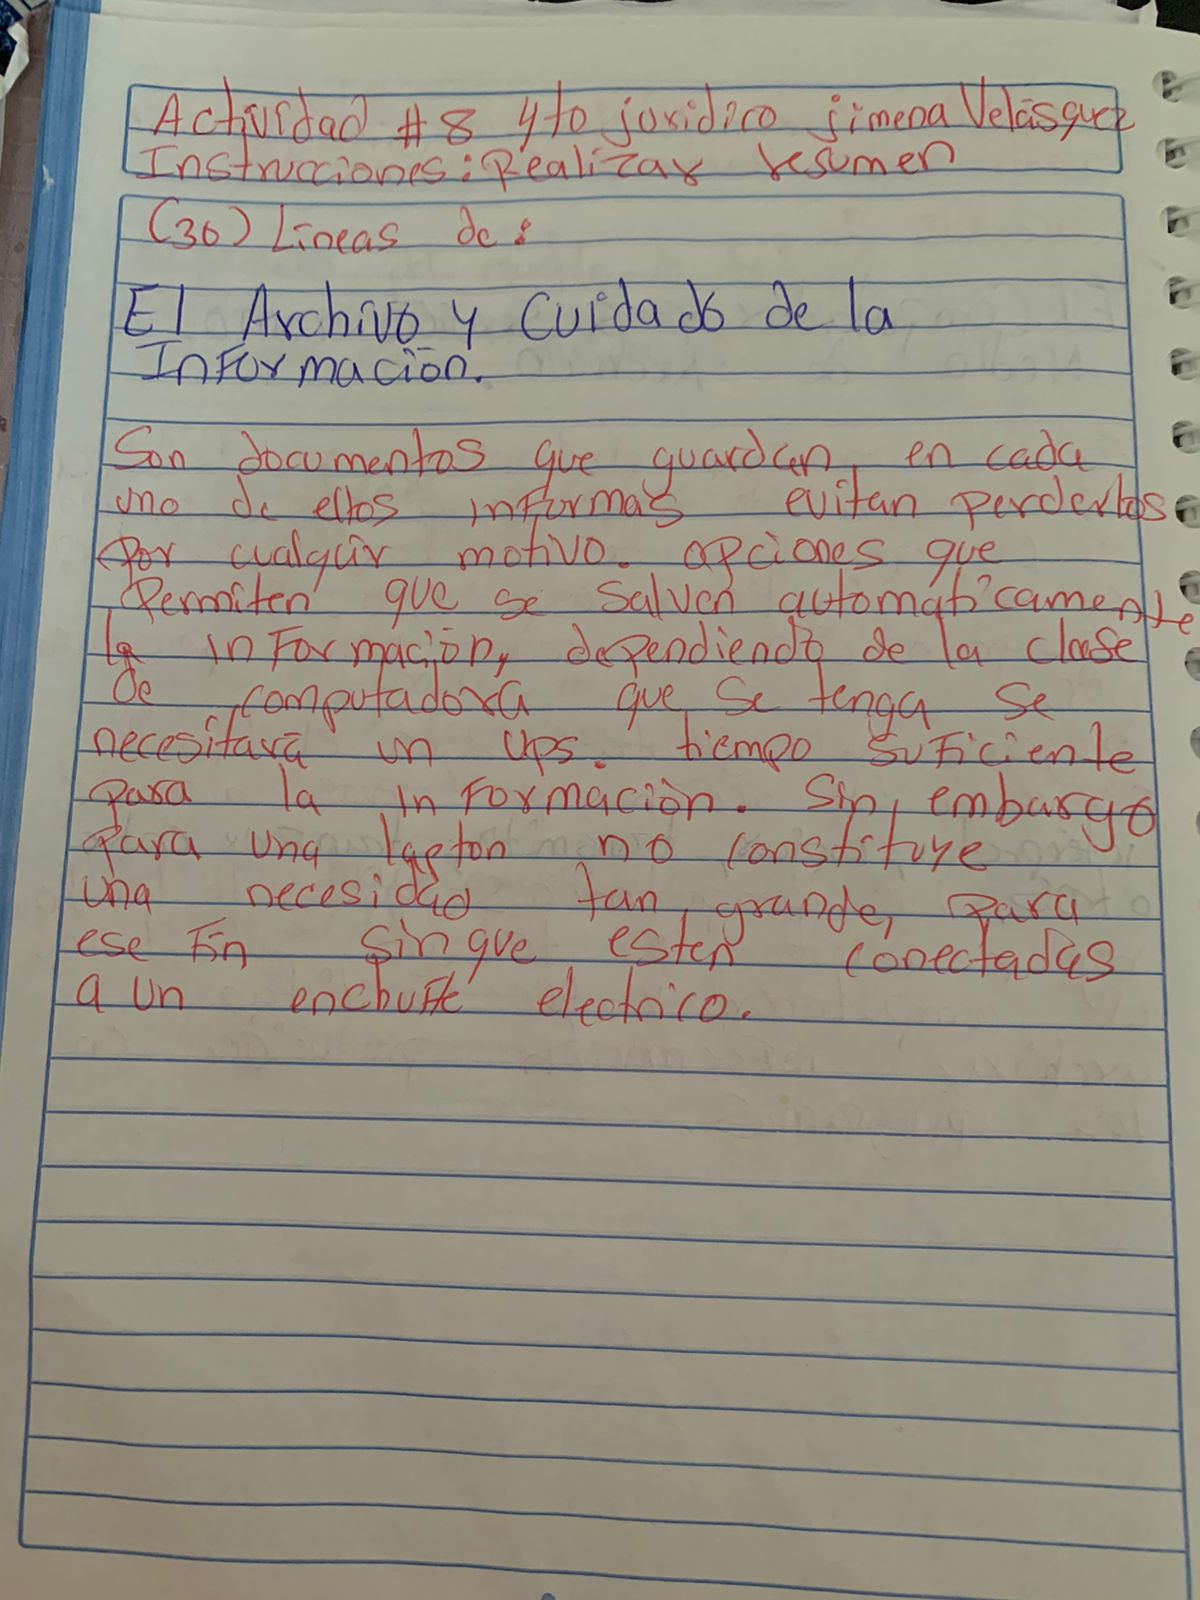 Actividad # 8 4to juridico jimena Velásquez
Instrucciones: Realizar resumen
(30) Líneas de:
El Archivo y Cuidado de la
Información.
Son documentos que guardan, en cada
uno de ellos informas evitan perderlos
por cualquir motivo. opciones que
Permiten que se salven automaticamente
la información, dependiendo de la clase
de computadora que se tenga se
necesitará un ups. tiempo suficiente
para la información. Sin embargo
para una lapton no constituye
una necesidad tan grande, para
ese fin sin que esten conectadas
a un enchufe electrico.